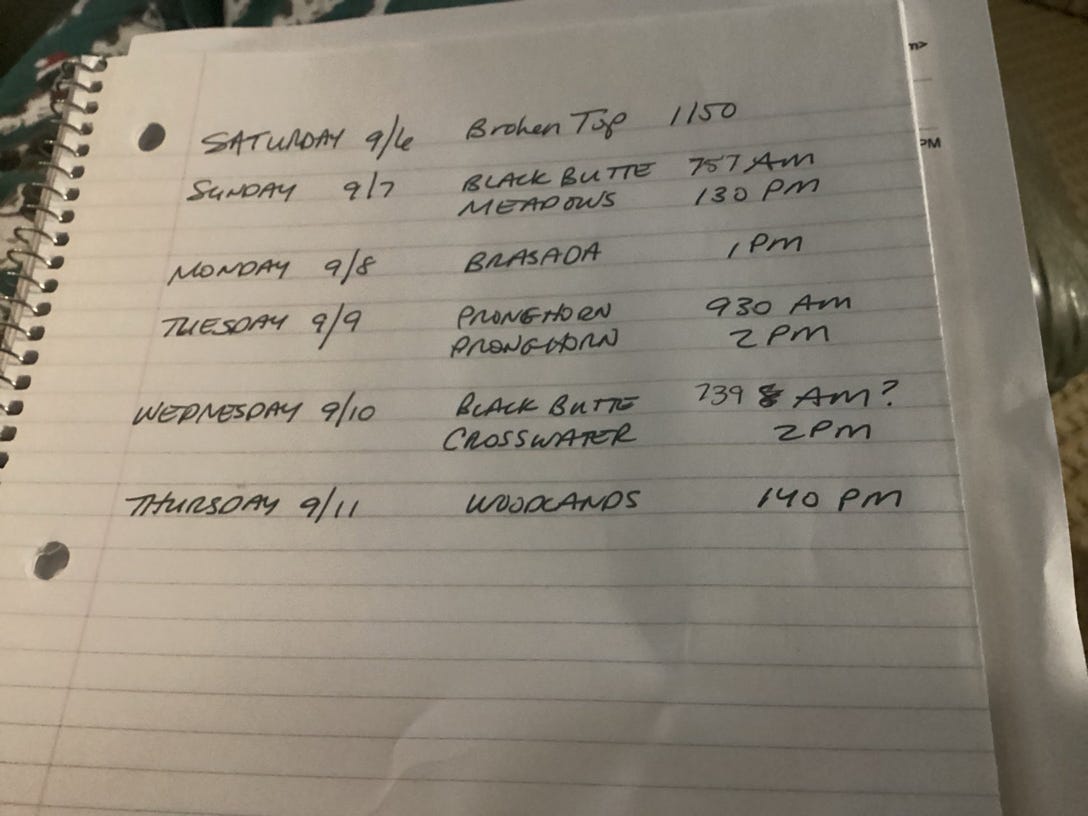 SATURDAY 9/6 Broken Top 1150
SUNDAY 9/7 BLACK BUTTE 757 AM
MEADOWS 130 PM
MONDAY 9/8 BRASADA 1 PM
TUESDAY 9/9 PRONGHORN 930 AM
PRONGHORN 2 PM
WEDNESDAY 9/10 BLACK BUTTE 739 AM?
CROSSWATER 2 PM
THURSDAY 9/11 WOODLANDS 140 PM
PM